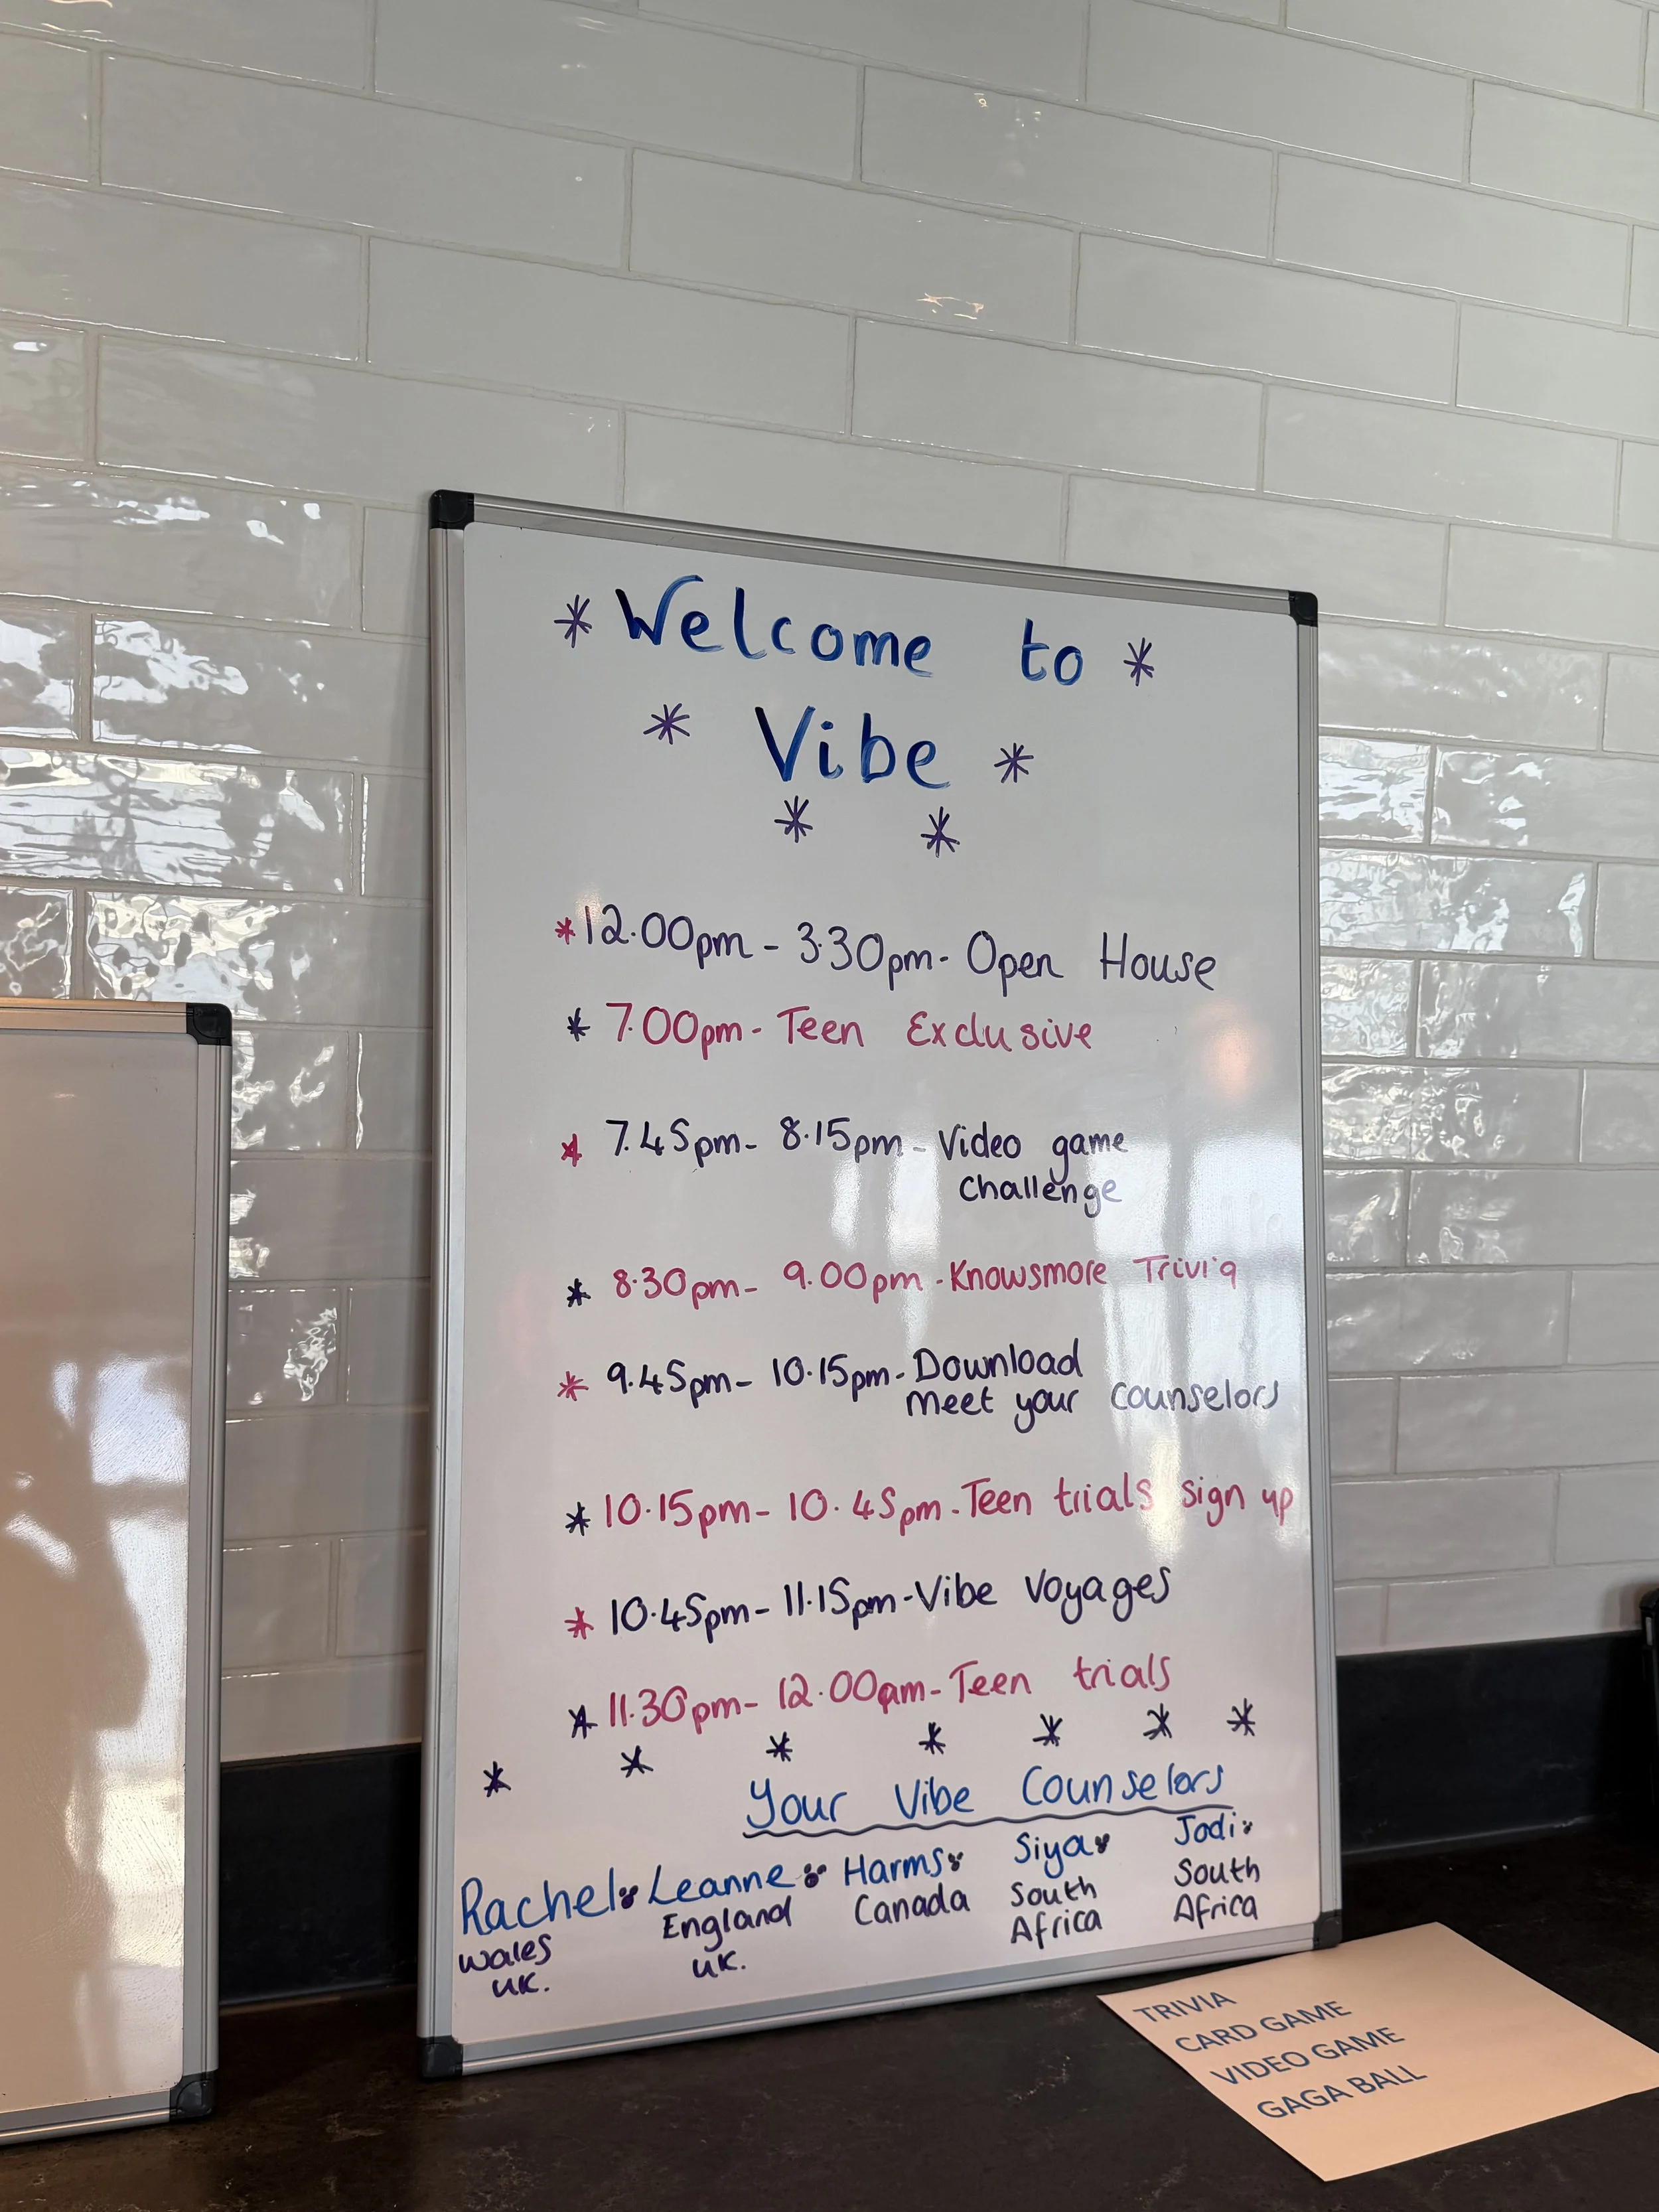 * Welcome to *
* Vibe *
* *
* 12.00pm - 3.30pm - Open House
* 7.00pm - Teen Exclusive
* 7.45pm - 8.15pm - Video game
challenge
* 8.30pm - 9.00pm - Knowsmore Trivia
* 9.45pm - 10.15pm - Download
meet your counselors
* 10.15pm - 10.45pm - Teen trials sign up
* 10.45pm - 11.15pm - Vibe Voyages
* 11.30pm - 12.00am - Teen trials
* * * * * * *
Your Vibe Counselors
Rachel Leanne Harms Siya Jodi
Wales England Canada South South
UK. UK. Africa Africa
TRIVIA
CARD GAME
VIDEO GAME
GAGA BALL